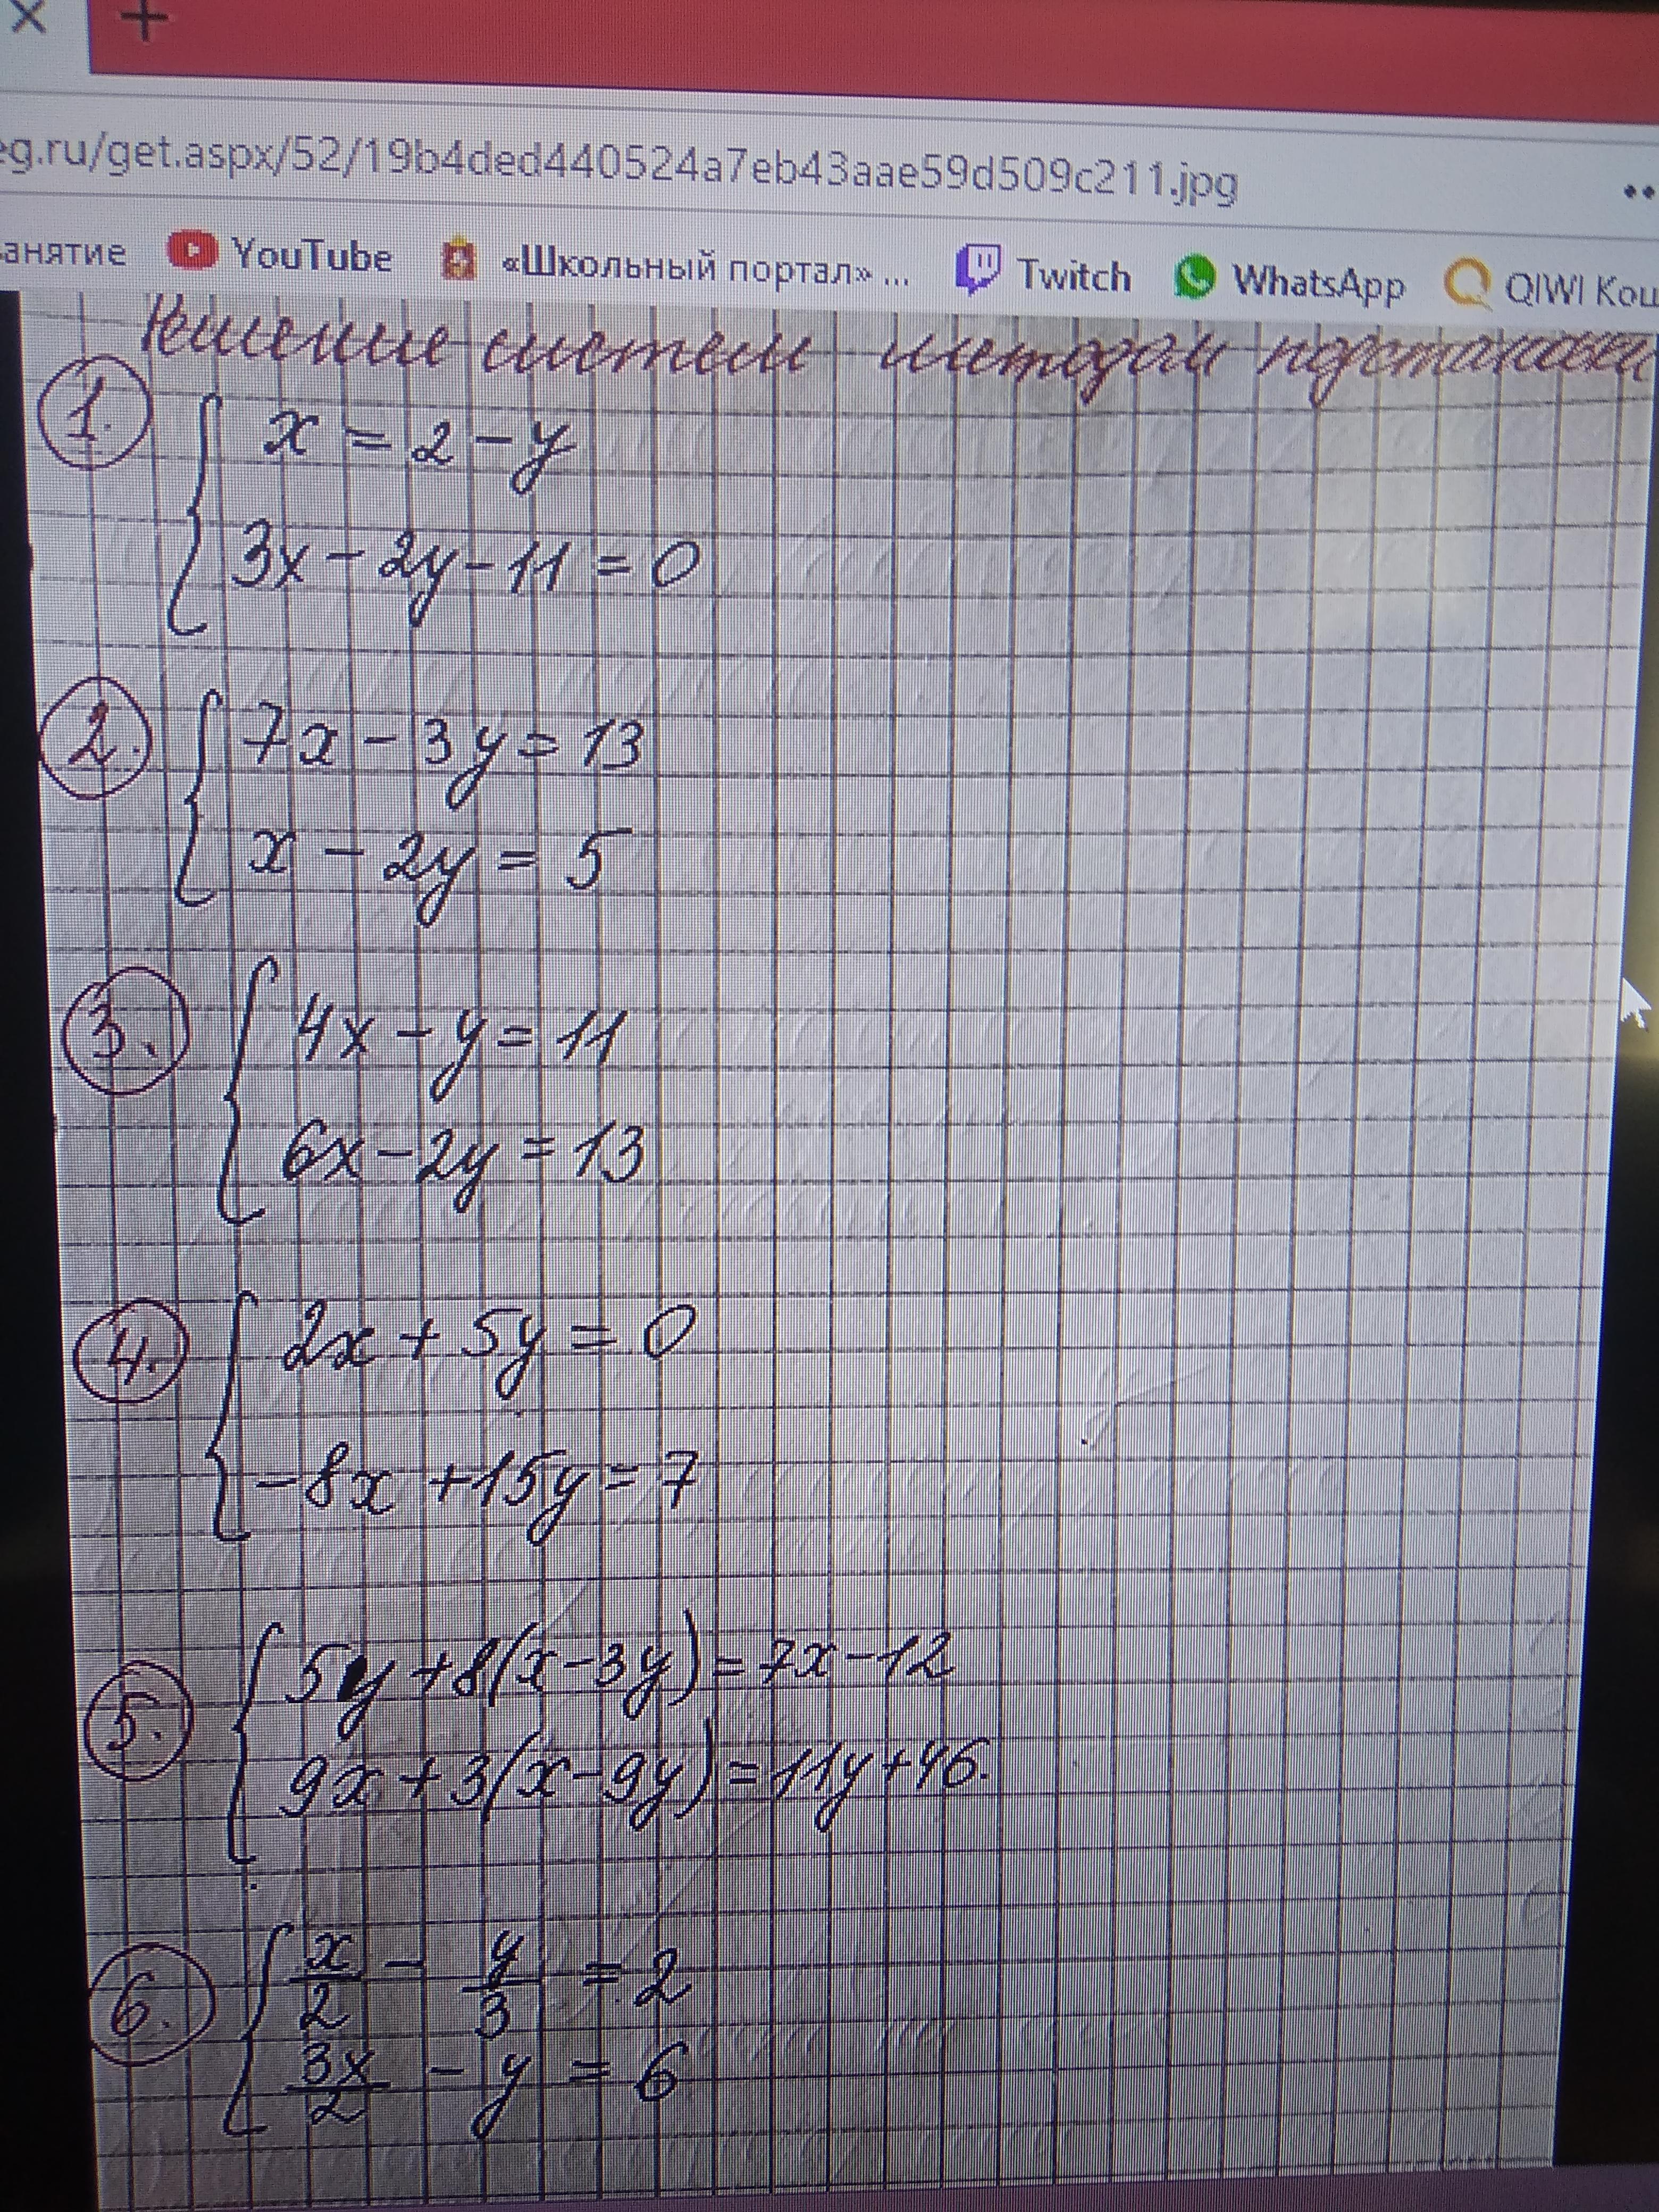 × +
eg.ru/get.aspx/52/19b4ded440524a7eb43aae59d509c211.jpg ••
анятие YouTube «Школьный портал» ... Twitch WhatsApp QIWI Кош
Решение систем методом подстановки
1. x = 2 - y
3x - 2y - 11 = 0
2. 7x - 3y = 13
x - 2y = 5
3. 4x - y = 11
6x - 2y = 13
4. 2x + 5y = 0
-8x + 15y = 7
5. 5y + 8(x - 3y) = 7x - 12
9x + 3(x - 9y) = 11y + 46.
6. x/2 - y/3 = 2
3x/2 - y = 6